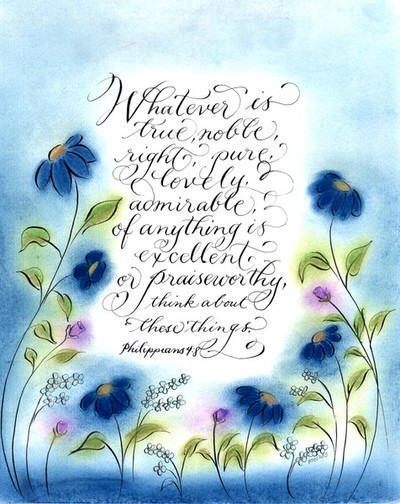 Whatever is
true, noble,
right, pure,
lovely,
admirable,
of anything is
excellent,
or praiseworthy,
think about
these things.
Philippians 4:8